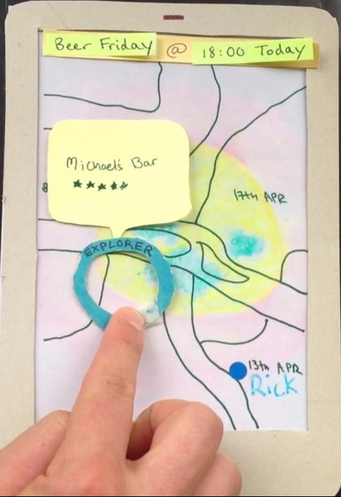 Beer Friday @ 18:00 Today
Michael's Bar
17th APR
EXPLORER
13th APR
Rick